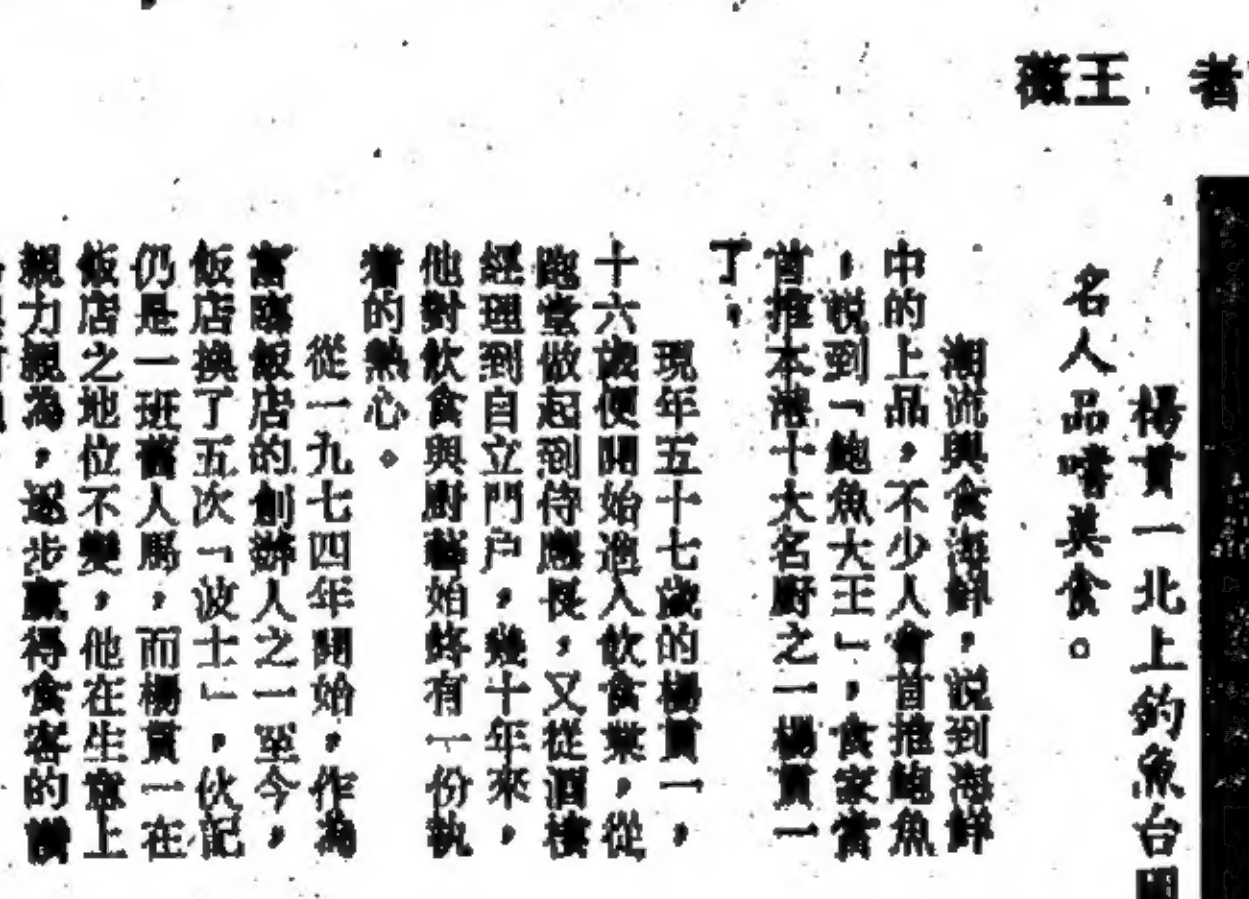 者 王薇
楊貫一北上釣魚台
名人品嚐美食。
潮流興食海鮮，說到海鮮
中的上品，不少人會首推鮑魚
，說到「鮑魚大王」，食家當
首推本港十大名廚之一楊貫一
了。
現年五十七歲的楊貫一，
十六歲便開始進入飲食業，從
跑堂做起到侍應長，又從酒樓
經理到自立門户，幾十年來，
他對飲食與廚藝始終有一份執
着的熱心。
從一九七四年開始，作為
富臨飯店的創辦人之一至今，
飯店換了五次「波士」，伙記
仍是一班舊人馬，而楊貫一在
飯店之地位不變，他在生意上
親力親為，逐步贏得食客的讚